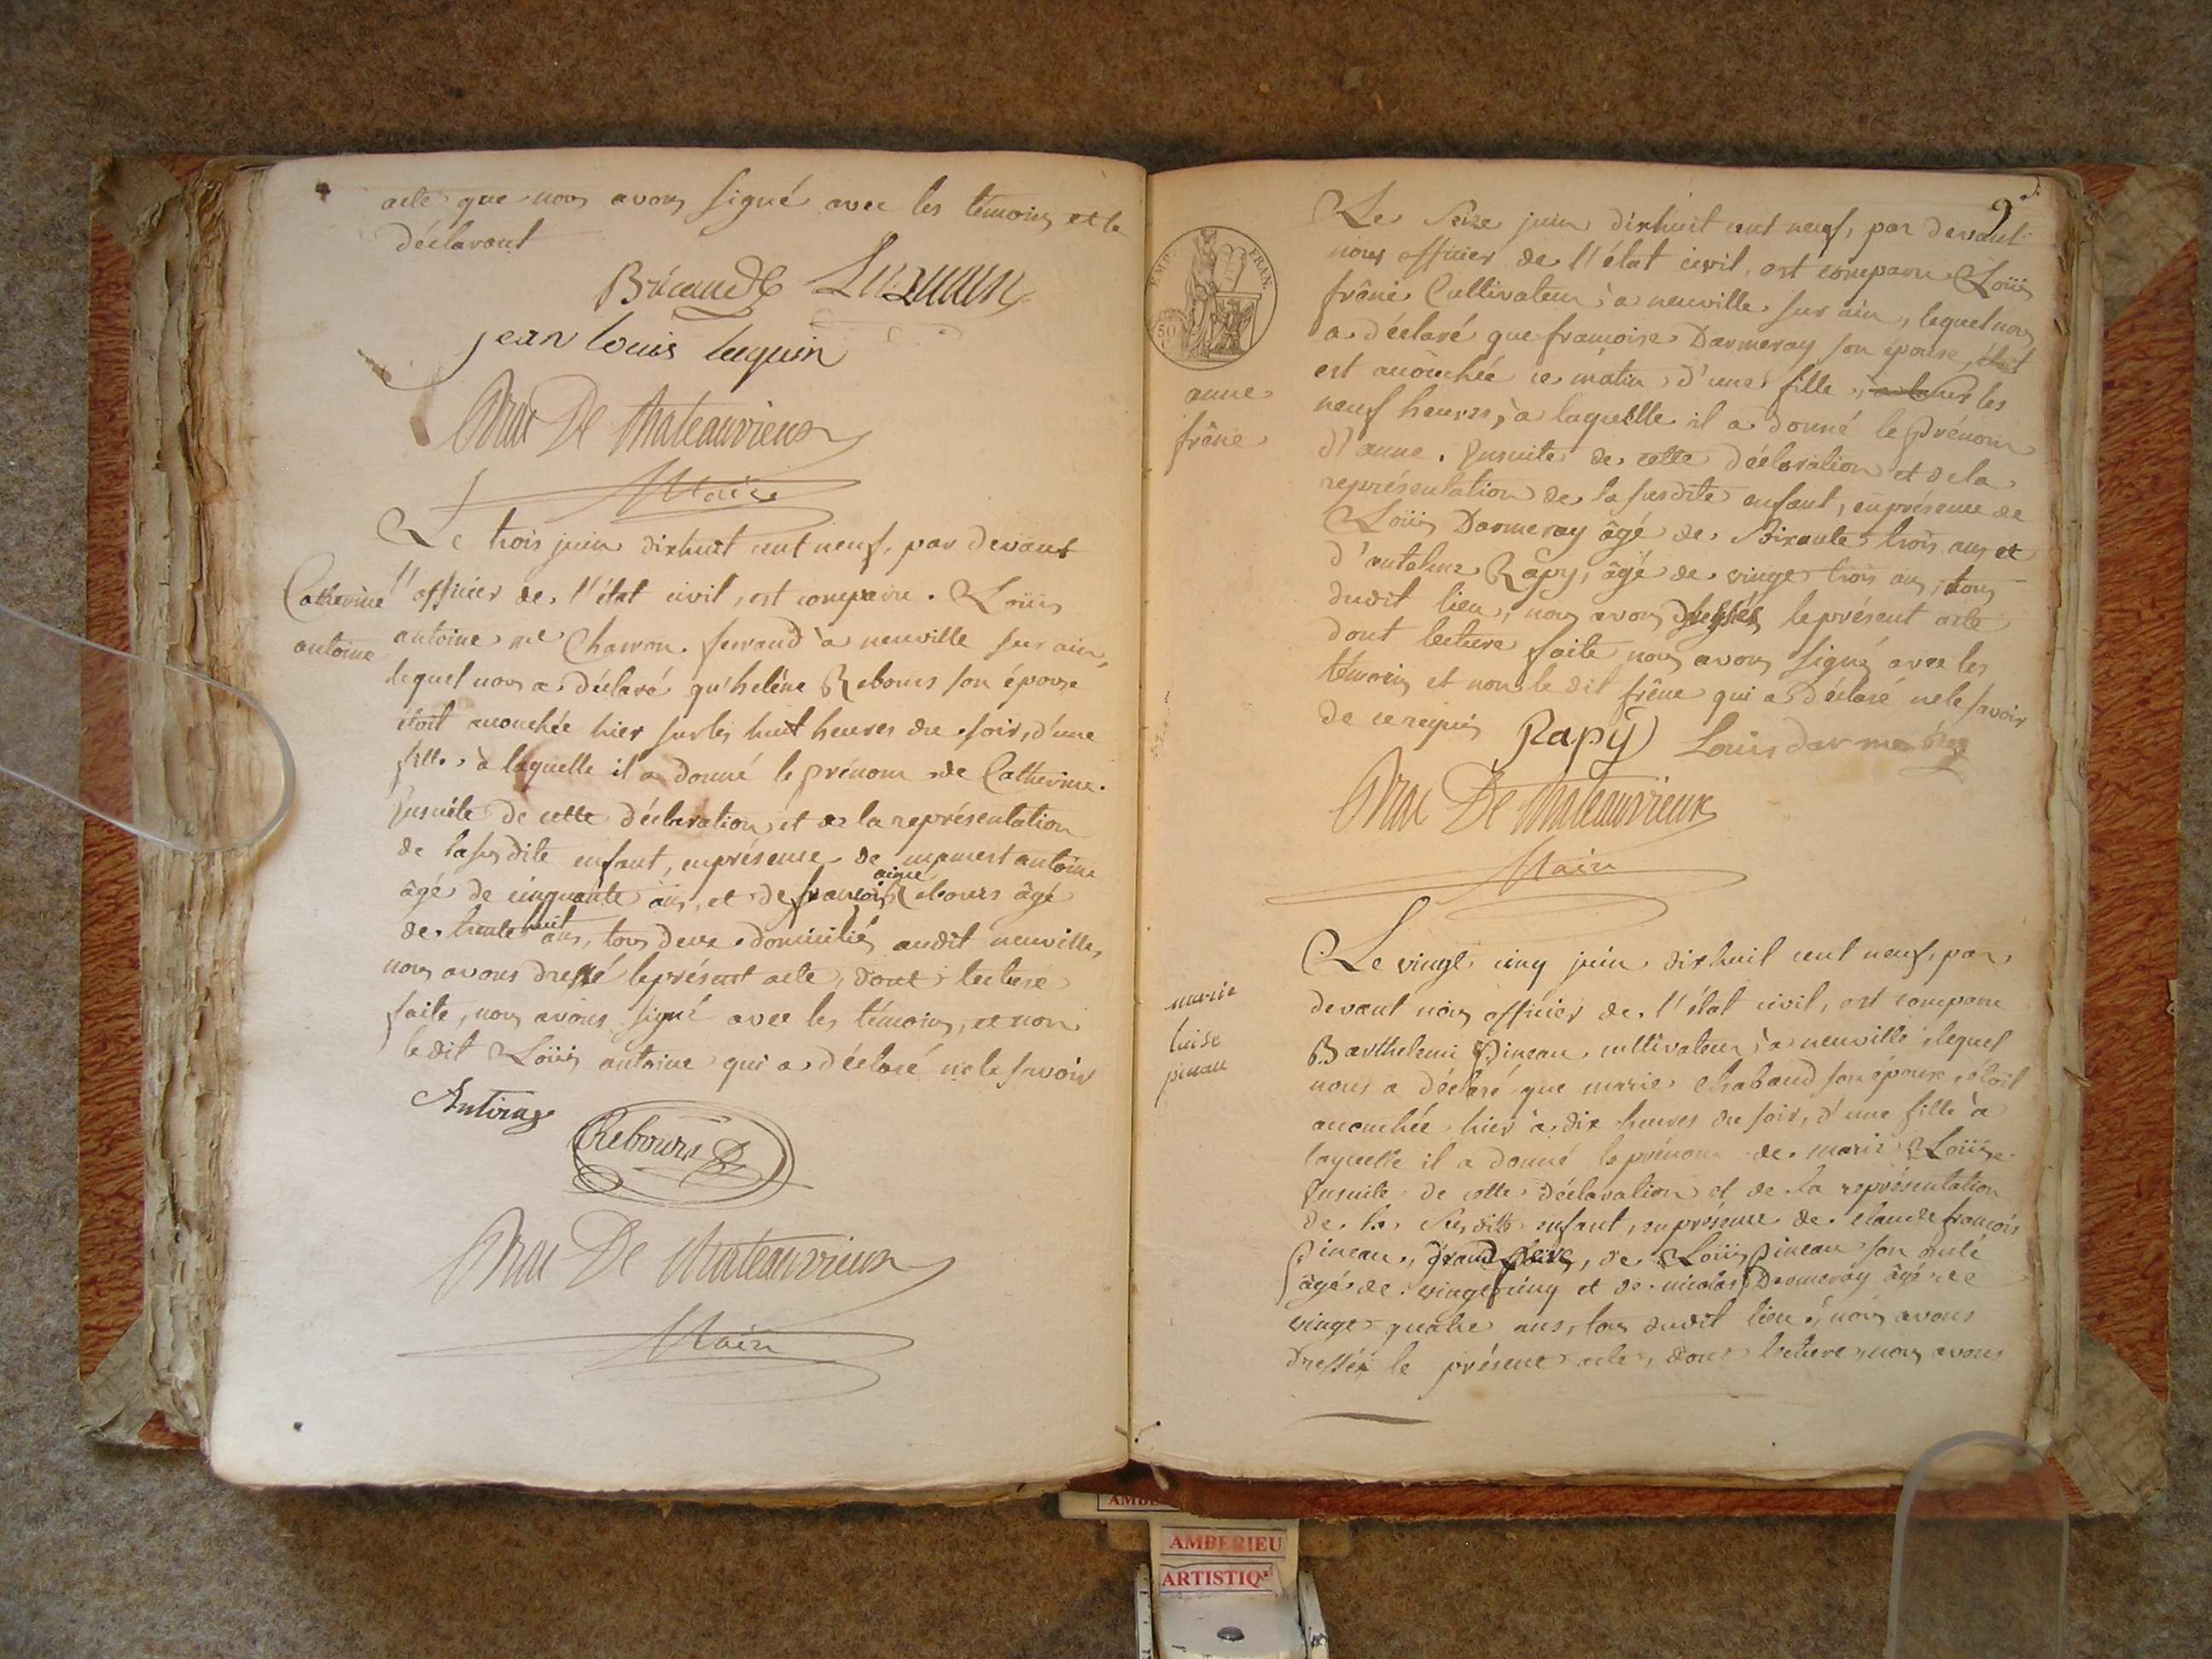 acte que nous avons signé avec les témoins et le
déclarant
jean louis luquin
De Chateauvieux
Maire
Le trois juin dixhuit cent neuf, par devant
Catherine
antoine
l'officier de l'état civil, est comparu Loüis
antoine me Charron ferrand à neuville sur ain,
lequel nous a déclaré qu'heléne Rebours son épouse
étoit accouchée hier sur les huit heures du soir, d'une
fille, à laquelle il a donné le prénom de Catherine.
Ensuite de cette déclaration et de la représentation
de la susdite enfant, en présence de mamert antoine
âgé de cinquante ans, et de françois ainé Rebours âgé
de trente huit ans, tous deux domiciliés audit neuville,
nous avons dressé le présent acte, dont lecture
faite, nous avons signé avec les témoins, et non
le dit Loüis antoine qui a déclaré ne le savoir
Antoine
Rebours
De Chateauvieux
Maire
9
EMP. FRAN.
50
Le Seize juin dixhuit cent neuf, par devant
nous officier de l'état civil, est comparu Loüis
frêne Cultivateur à neuville sur ain, lequel nous
a déclaré que françoise Darmeray son épouse, étoit
est accouchée ce matin d'une fille, les
anne
frêne
neuf heures, à laquelle il a donné le prénom
d'anne. Ensuite de cette déclaration et de la
représentation de la susdite enfant, en présence de
Loüis Darmeray âgé de Soixante trois ans et
d'antelme Rapy, âgé de vingt trois ans, tous
dudit lieu, nous avons dressés le présent acte
dont lecture faite nous avons signé avec les
témoins et non le dit frêne qui a déclaré ne le savoir
de ce requis
Rapy Louis darmeray
De Chateauvieux
Maire
Le vingt cinq juin dixhuit cent neuf, par
marie
luise
pineau
devant nous officier de l'état civil, est comparu
Barthelemi Pineau cultivateur à neuville, lequel
nous a déclaré que marie Chabaud son épouse, étoit
accouchée hier à dix heures du soir, d'une fille à
laquelle il a donné le prénom de marie Loüise.
Ensuite de cette déclaration et de la représentation
de la Susdite enfant, en présence de claude françois
Pineau, grand père, de Loüis Pineau son oncle
âgé de vingt cinq et de nicolas Darmeray âgé de
vingt quatre ans, tous dudit lieu, nous avons
dressés le présent acte, dont lecture, nous avons
AMBERIEU
ARTISTIQ